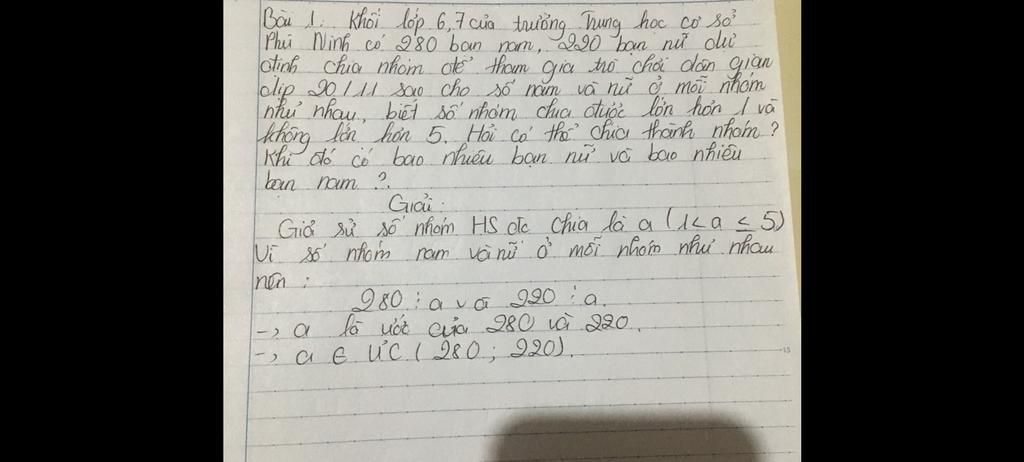 Bài 1: Khối lớp 6,7 của trường Trung học cơ sở
Phú Ninh có 280 bạn nam, 220 bạn nữ dự
định chia nhóm để tham gia trò chơi dân gian
dịp 20/11 sao cho số nam và nữ ở mỗi nhóm
như nhau, biết số nhóm chia được lớn hơn 1 và
không lớn hơn 5. Hỏi có thể chia thành nhóm?
Khi đó có bao nhiêu bạn nữ và bao nhiêu
bạn nam?.
Giải:
Giả sử số nhóm HS đc chia là a (1 < a ≤ 5)
Vì số nhóm nam và nữ ở mỗi nhóm như nhau
nên:
280 ⋮ a và 220 ⋮ a.
-> a là ước của 280 và 220.
-> a ∈ ƯC (280; 220).